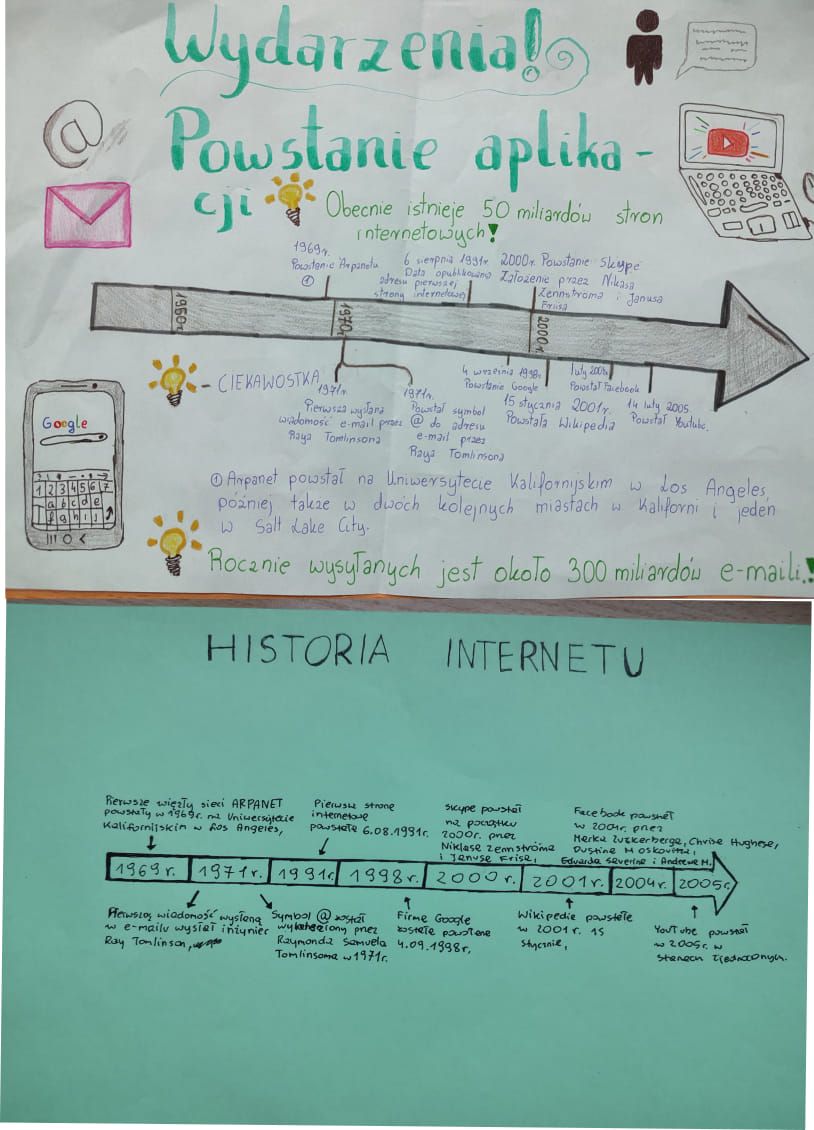 Wydarzenia!
Powstanie aplika-
cji
Obecnie istnieje 50 miliardów stron
internetowych!
1969r.
Powstanie Arpanetu
①
6 sierpnia 1991r.
Data opublikowano
adresu pierwszej
strony internetowej
2000r. Powstanie Skype
Założenie przez Niklasa
Zennströma i Janusa
Friisa
1960r.
1970r.
2000r.
- CIEKAWOSTKA
1971r.
Pierwsza wysłana
wiadomość e-mail przez
Raya Tomlinsona
1971r.
Powstał symbol
@ do adresu
e-mail przez
Raya Tomlinsona
4 września 1998r.
Powstanie Google
15 stycznia 2001r.
Powstała Wikipedia
luty 2004r.
Powstał Facebook
14 luty 2005
Powstał Youtube.
@
Google
1 2 3 4 5 6 7
a b c d e
f g h i j
① Arpanet powstał na Uniwersytecie Kalifornijskim w Los Angeles,
później także w dwóch kolejnych miastach w Kaliforni i jeden
w Salt Lake City.
Rocznie wysyłanych jest około 300 miliardów e-maili.!
HISTORIA INTERNETU
Pierwsze węzły sieci ARPANET
powstały w 1969r. na Uniwersytecie
Kalifornijskim w Los Angeles,
Pierwsza strona
internetowa
powstała 6.08.1991r.
Skype powstał
na początku
2000r. przez
Niklasa Zennströma
i Janusa Friisa,
Facebook powstał
w 2004r. przez
Marka Zuckerberga, Chrisa Hughesa,
Dustina Moskovitza,
Eduarda Saverina i Andrewa M.
1969r.
1971r.
1991r.
1998r.
2000r.
2001r.
2004r.
2005r.
Pierwszą wiadomość wysłaną
w e-mailu wysłał inżynier
Ray Tomlinson,
Symbol @ został
wynaleziony przez
Raymonda Samuela
Tomlinsona w 1971r.
Firma Google
została powołana
4.09.1998r,
Wikipedia powstała
w 2001r. 15
stycznia,
YouTube powstał
w 2005r. w
Stanach Zjednoczonych.